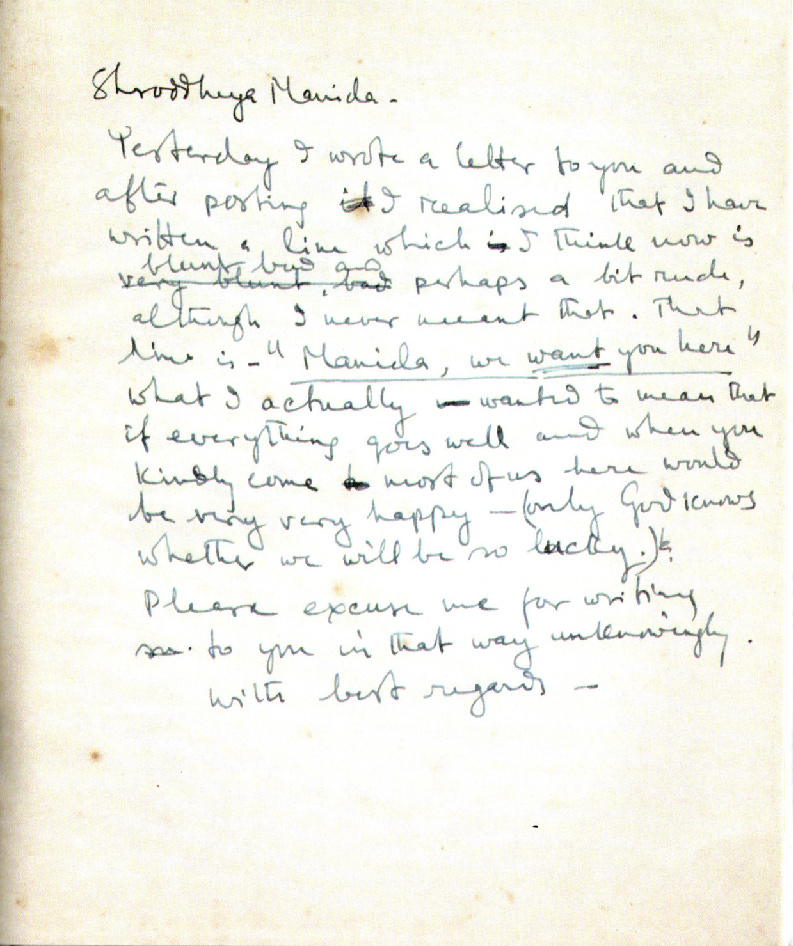 Shroddheya Manida.
Yesterday I wrote a letter to you and
after posting it I realised that I have
written a line which is I think now is
blunt bad and
very blunt, bad perhaps a bit rude,
although I never meant that. That
line is - "Manida, we want you here"
what I actually wanted to mean that
if everything goes well and when you
kindly come most of us here would
be very very happy - (only God knows
whether we will be so lucky.)
Please excuse me for writing
to you in that way unknowingly.
with best regards -